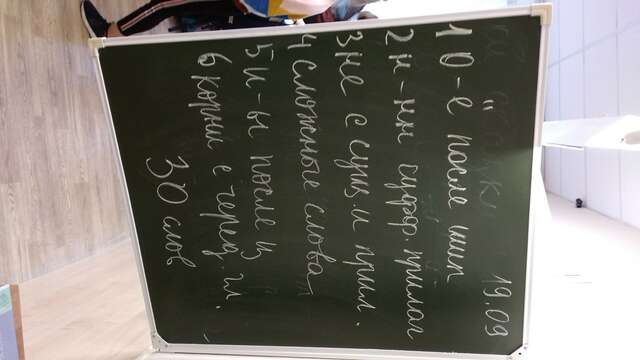 19.09
1 О-ё после шип
2 н-нн суфф. прилаг
3 не с сущ. и прил.
4 сложные слова
5 и-ы после ц
6 корни с черед. гл.
30 слов